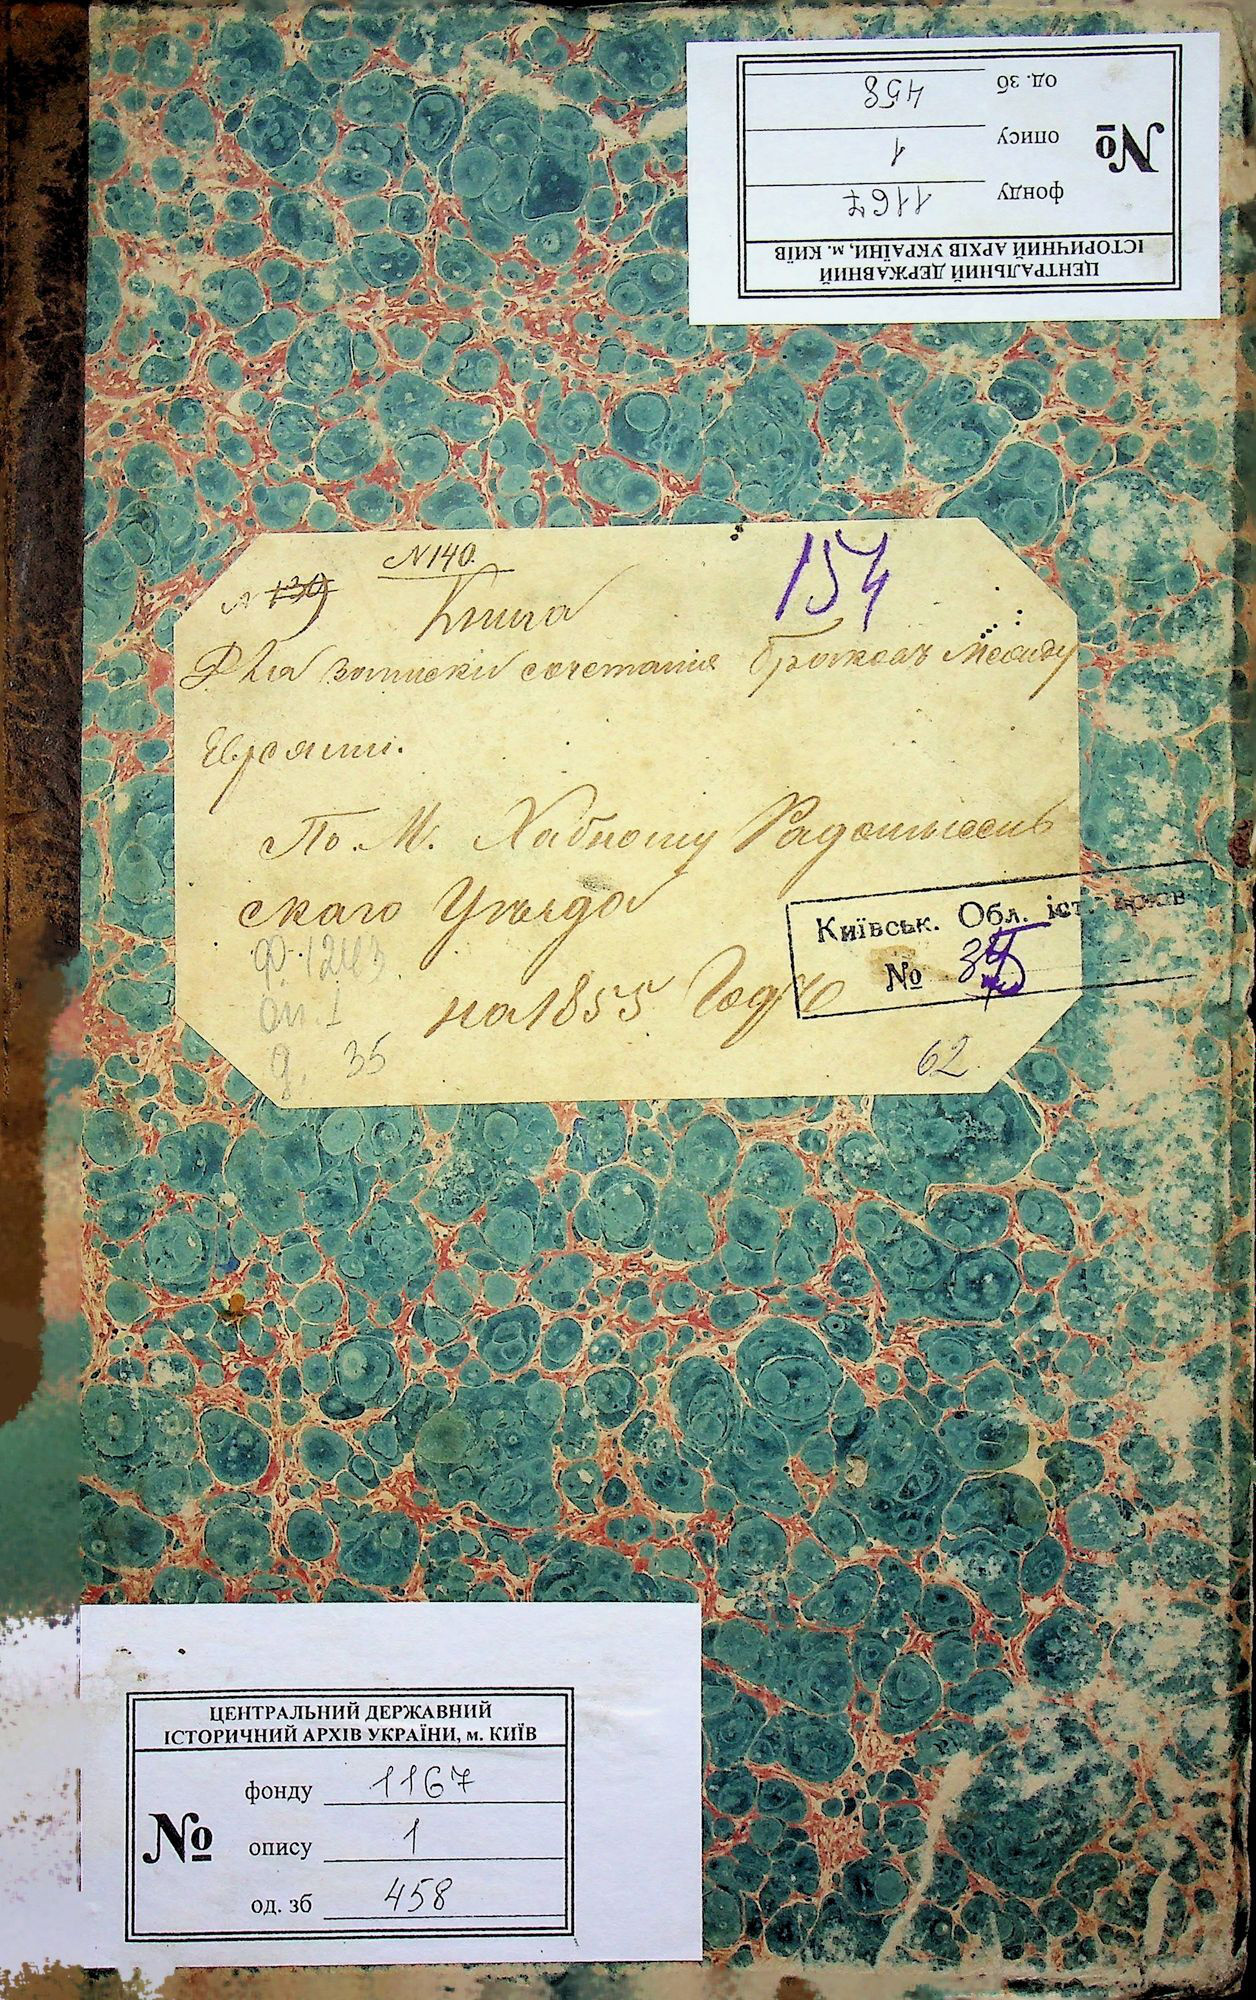 од. зб 458
опису 1
№
фонду 1167
ЦЕНТРАЛЬНИЙ ДЕРЖАВНИЙ
ІСТОРИЧНИЙ АРХІВ УКРАЇНИ, м. КИЇВ
N 140.
N 139
154
Книга
Для записки сочетанія браковъ между
Евреями.
По М. Хабному Радомысль
скаго Уѣзда
Київськ. Обл. іст. архів
№ 35
ф. 1243
оп. 1
на 1855 Годъ
д. 35
62
ЦЕНТРАЛЬНИЙ ДЕРЖАВНИЙ
ІСТОРИЧНИЙ АРХІВ УКРАЇНИ, м. КИЇВ
фонду 1167
№
опису 1
од. зб 458